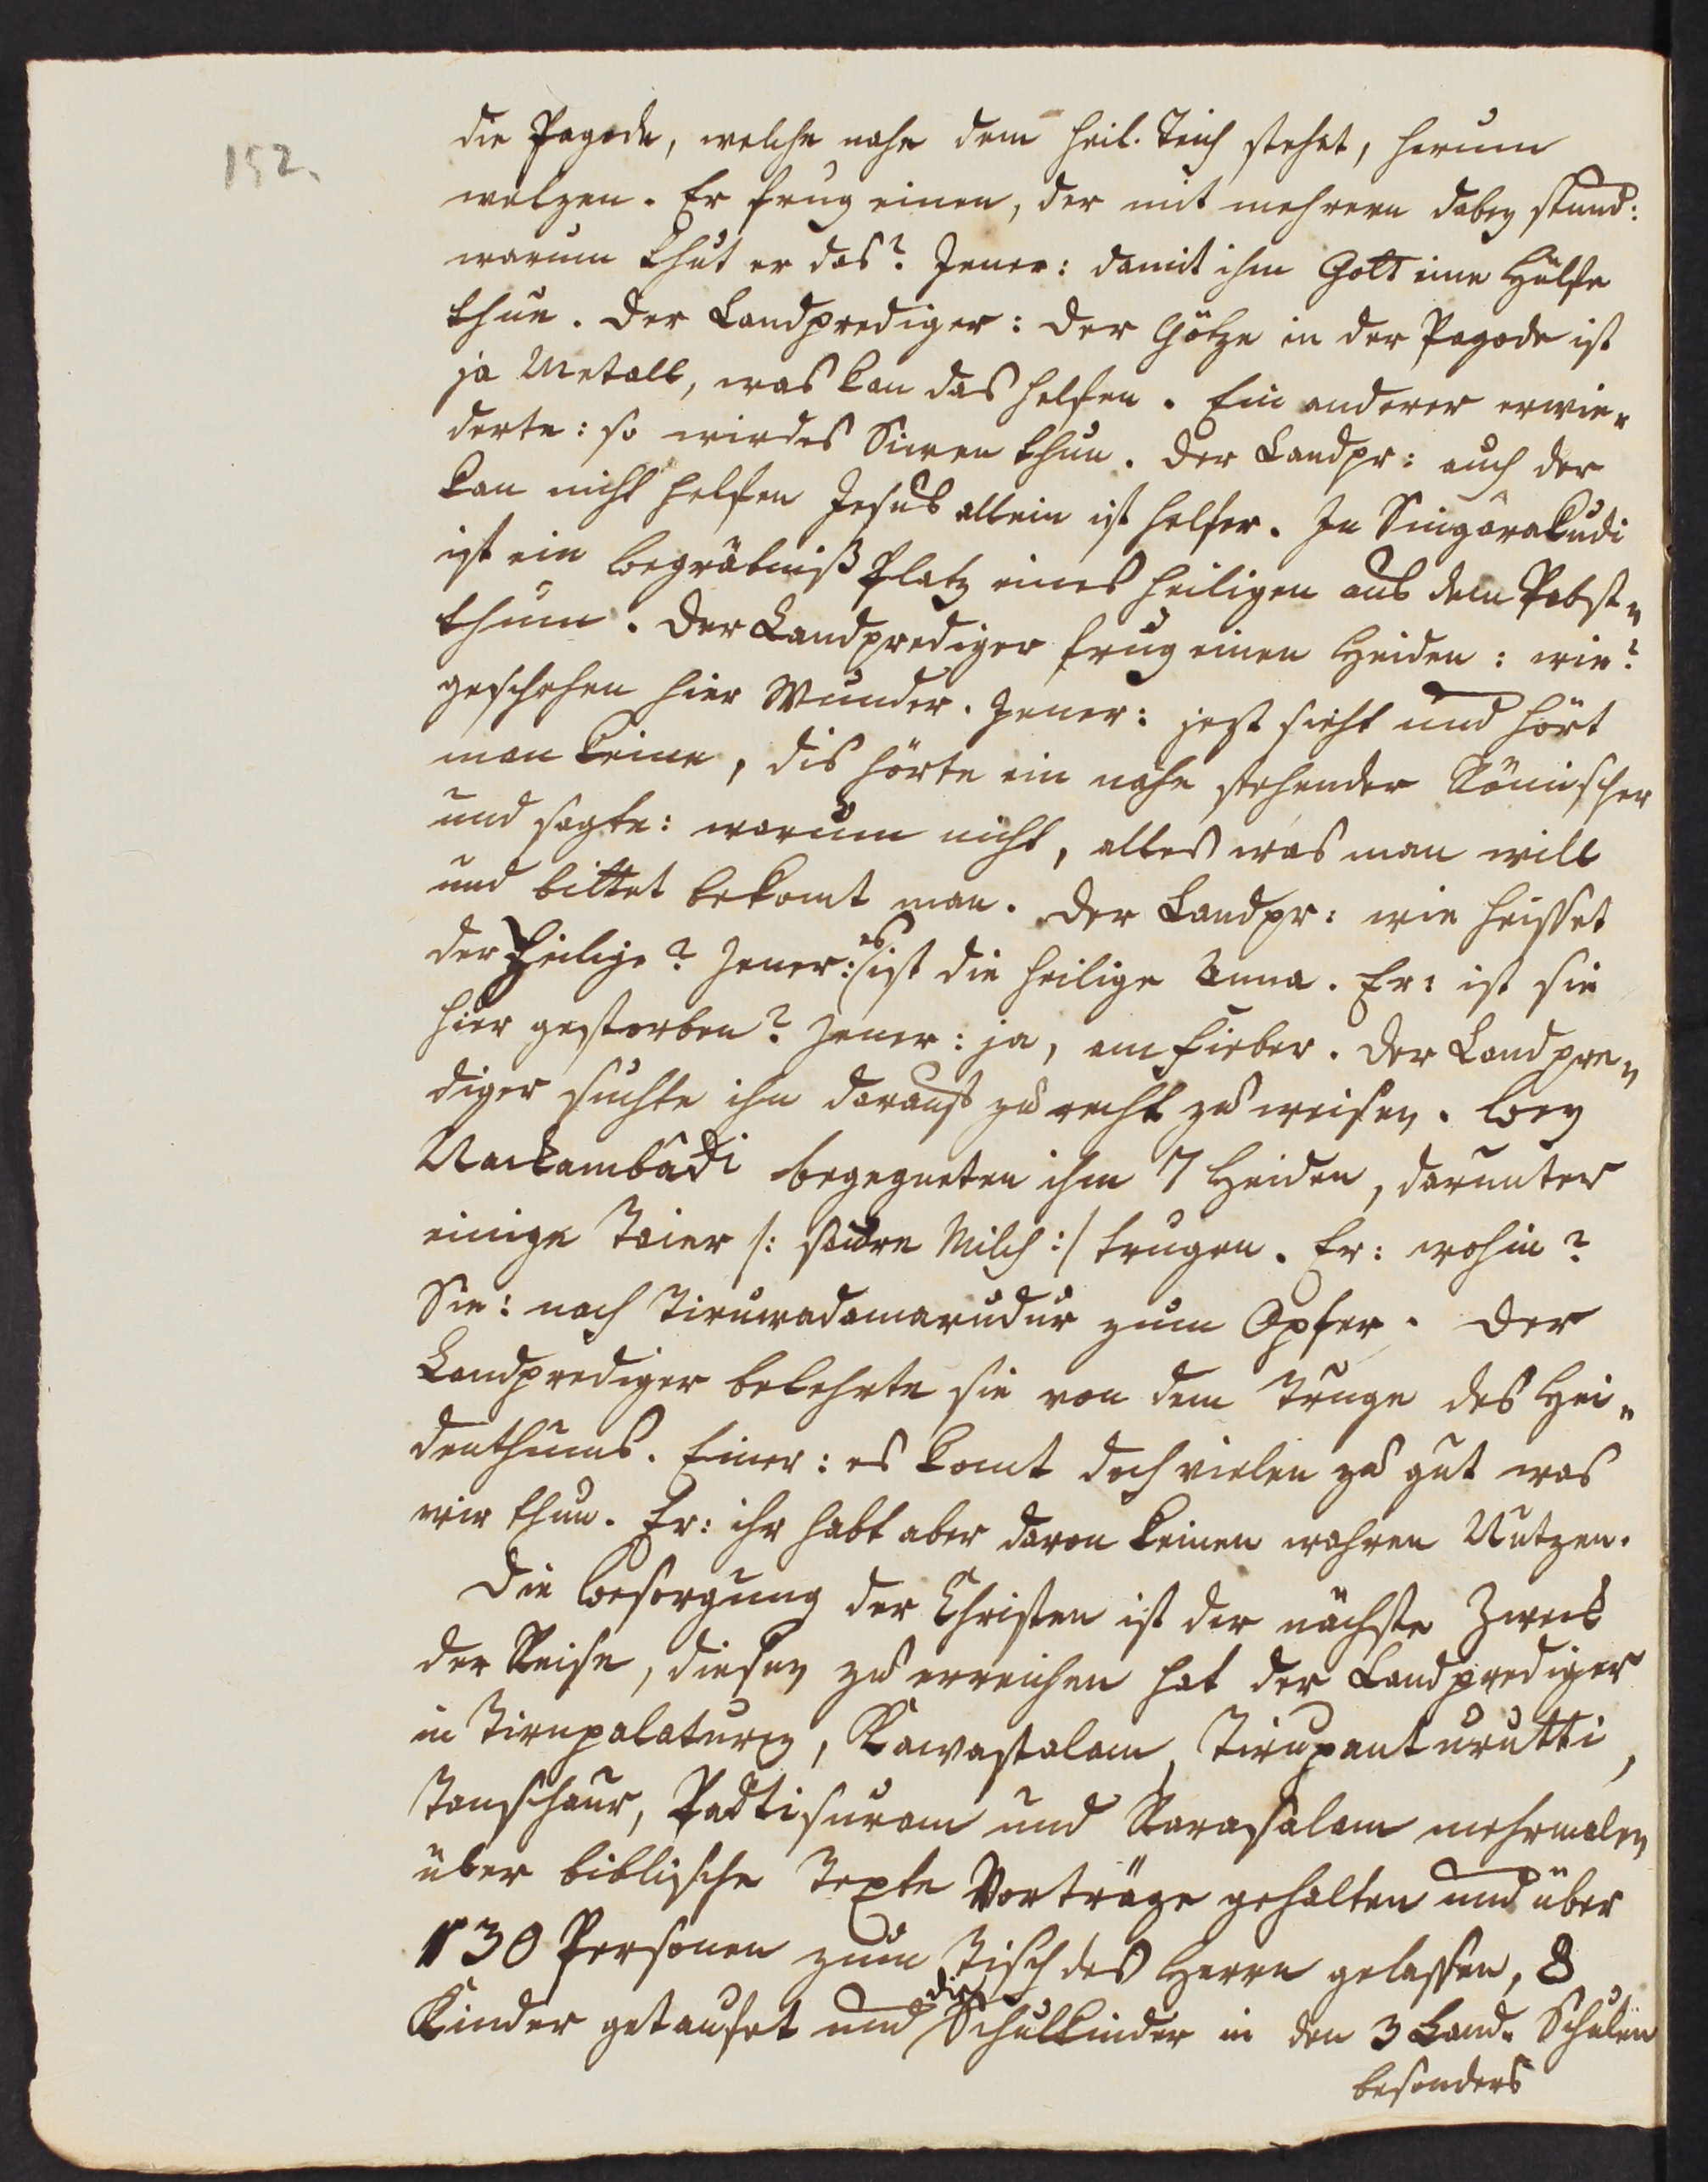 152.
die Pagode, welche nahe dem heil. Teich stehet, herum
welzen. Er frug einen, der mit mehrern dabey stund:
warum thut er das? Jener: damit ihm Gott eine Hülfe
thue. Der Landprediger: der Götze in der Pagode ist
ja Metall, was kan das helfen. Ein anderer erwie„
derte: so wird es Siwen thun. Der Landpr: auch der
kan nicht helfen Jesus allein ist Helfer. In Singârakudi
ist ein Begräbniß Platz eines Heiligen aus dem Pabst„
thum. Der Landprediger frug einen Heiden: wie?
geschehen hier Wunder. Jener: jezt sieht und hört
man keine, dis hörte ein nahe stehender Römischer
und sagte: warum nicht, alles was man will
und bittet bekomt man. Der Landpr: wie heisset
der Heilige? Jener: es ist die heilige Anna. Er: ist sie
hier gestorben? Jener: ja, am Fieber. Der Landpre„
diger suchte ihn darauf zu recht zu weisen. Bey
Nackambâdi begegneten ihm 7 Heiden, darunter
einige Taier /: saure Milch :/ trugen. Er: wohin?
Sie: nach Tiruwadamarudur zum Opfer. Der
Landprediger belehrte sie von dem Truge des Hei„
denthums. Einer: es komt doch vielen zu gut was
wir thun. Er: ihr habt aber davon keinen wahren Nutzen.
Die Besorgung der Christen ist der nächste Zweck
der Reise, diesen zu erreichen hat der Landprediger
in Tirupalaturey, Kawastalam, Tirupanturutti,
Tanschaur, Padtisuram und Karasalam mehrmalen
über biblische Texte Vorträge gehalten und über
130 Personen zum Tisch des Herrn gelassen, 8
Kinder getaufet und die Schulkinder in den 3 Land. Schulen
besonders